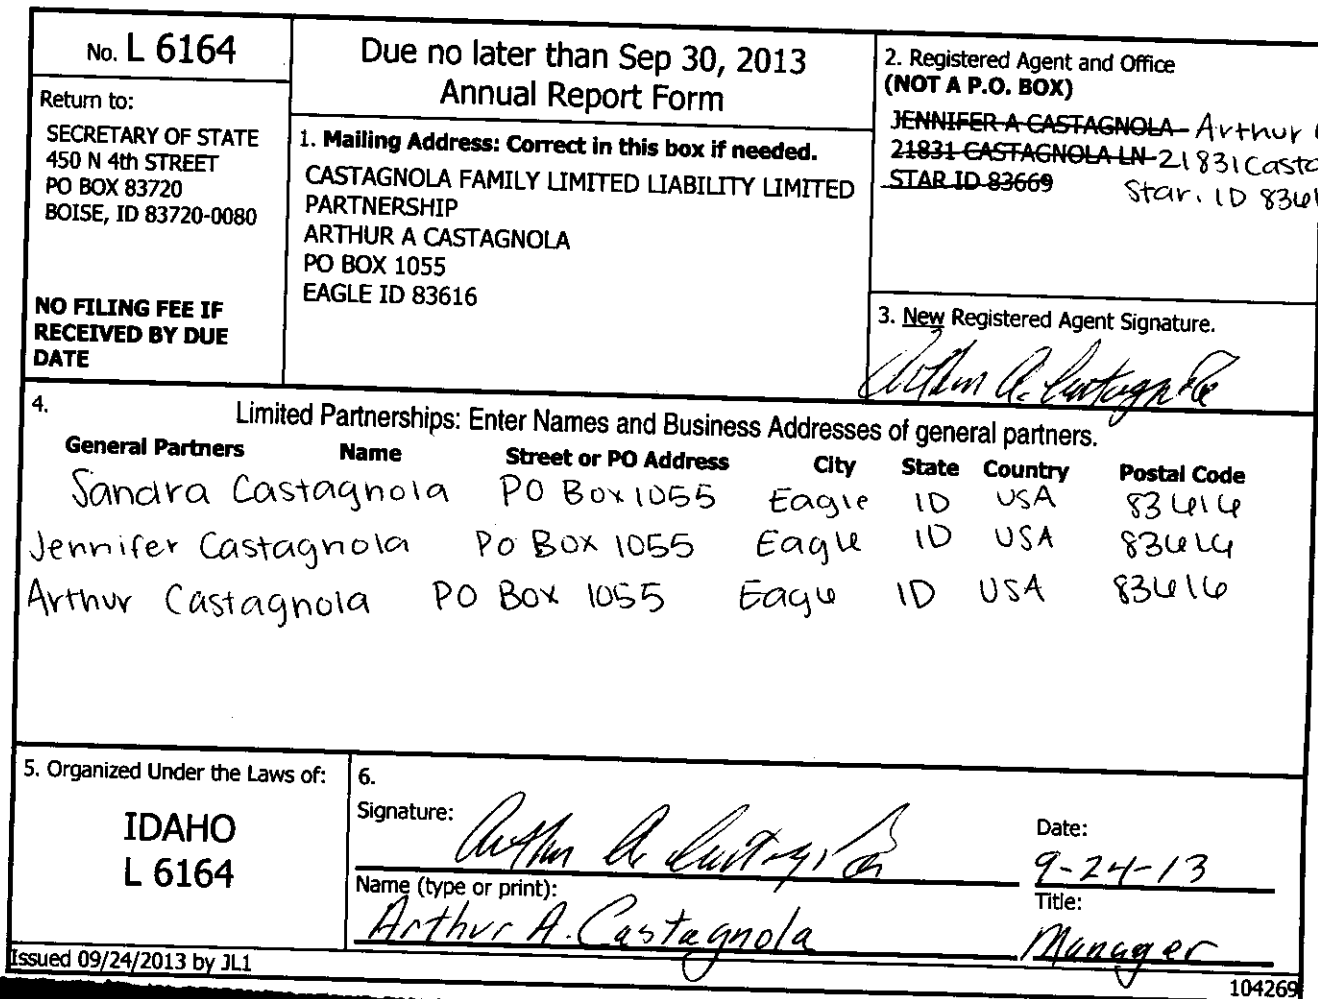 No. L 6164
Return to:
SECRETARY OF STATE
450 N 4th STREET
PO BOX 83720
BOISE, ID 83720-0080
NO FILING FEE IF
RECEIVED BY DUE
DATE
Due no later than Sep 30, 2013
Annual Report Form
1. Mailing Address: Correct in this box if needed.
CASTAGNOLA FAMILY LIMITED LIABILITY LIMITED
PARTNERSHIP
ARTHUR A CASTAGNOLA
PO BOX 1055
EAGLE ID 83616
2. Registered Agent and Office
(NOT A P.O. BOX)
JENNIFER A CASTAGNOLA Arthur
21831 CASTAGNOLA LN 21831 Casta
STAR ID 83669 Star. ID 836
3. New Registered Agent Signature.
Arthur A. Castagnola
4.
Limited Partnerships: Enter Names and Business Addresses of general partners.
General Partners Name Street or PO Address City State Country Postal Code
Sandra Castagnola PO Box 1055 Eagle ID USA 83616
Jennifer Castagnola PO Box 1055 Eagle ID USA 83616
Arthur Castagnola PO Box 1055 Eagle ID USA 83616
5. Organized Under the Laws of:
IDAHO
L 6164
6.
Signature: Arthur A. Castagnola
Date:
9-24-13
Name (type or print):
Arthur A. Castagnola
Title:
Manager
Issued 09/24/2013 by JL1
104269